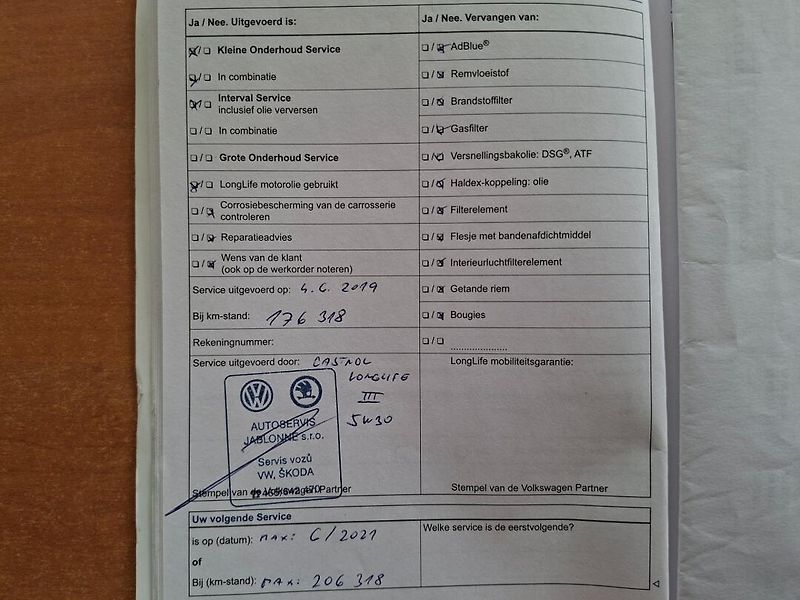 Ja / Nee. Uitgevoerd is:
Kleine Onderhoud Service
In combinatie
Interval Service
inclusief olie verversen
In combinatie
Grote Onderhoud Service
LongLife motorolie gebruikt
Corrosiebescherming van de carrosserie
controleren
Reparatieadvies
Wens van de klant
(ook op de werkorder noteren)
Service uitgevoerd op: 4. 6. 2019
Bij km-stand: 176 318
Rekeningnummer:
Service uitgevoerd door: CASTROL
LONGLIFE
III
5W30
AUTOSERVIS
JABLONNÉ s.r.o.
Servis vozů
VW, ŠKODA
Stempel van de Volkswagen Partner
Ja / Nee. Vervangen van:
AdBlue®
Remvloeistof
Brandstoffilter
Gasfilter
Versnellingsbakolie: DSG®, ATF
Haldex-koppeling: olie
Filterelement
Flesje met bandenafdichtmiddel
Interieurluchtfilterelement
Getande riem
Bougies
LongLife mobiliteitsgarantie:
Stempel van de Volkswagen Partner
Uw volgende Service
is op (datum): MAX: 6/2021
of
Bij (km-stand): MAX: 206 318
Welke service is de eerstvolgende?